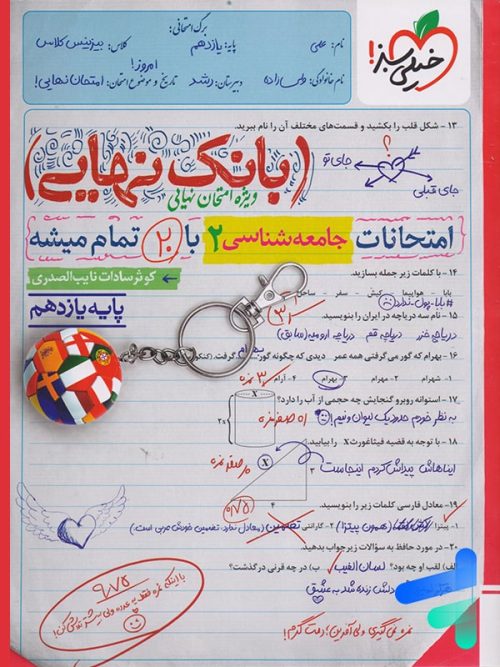 برگ امتحانی:
نام: علی
پایه: یازدهم
کلاس: بیزینس کلاس
نام خانوادگی:
دبیرستان: رشد
تاریخ و موضوع امتحان: امروز! امتحان نهایی!
خیلی سبز!
۱۳- شکل قلب را بکشید و قسمت‌های مختلف آن را نام ببرید.
؟
جای تو
جای قبلی
(بانک نهایی)
ویژه امتحان نهایی
امتحانات جامعه شناسی ۲ با ۲۰ تمام میشه
کوثر سادات نایب‌الصدری
پایه یازدهم
۱۴- با کلمات زیر جمله بسازید.
بابا - هواپیما - کیش - سفر - ساحل
#بابا-پول-ندارد
۱۵- نام سه دریاچه در ایران را بنویسید.
دریاچه خزر دریاچه قم دریاچه ارومیه (سابق)
۱۶- بهرام که گور می‌گرفتی همه عمر دیدی که چگونه گور گرفت.
۱- شهرام ۲- مهرام ۳- بهرام ۴- آرام
۱۷- استوانه روبرو گنجایش چه حجمی از آب را دارد؟
به نظر خودم حدود یک لیوان و نیم!
X
2x
۱۸- با توجه به قضیه فیثاغورث X را بیابید.
ایناهاش پیداش کردم اینجاست
X
۳
۴
۱۹- معادل فارسی کلمات زیر را بنویسید.
۱- پیتزا (همون پیتزا) ۲- گارانتی تضمین (معادل ندارد. تضمین خودش عربی است.)
۲۰- در مورد حافظ به سؤالات زیر جواب بدهید.
الف) لقب او چه بود؟ لسان الغیب ب) در چه قرنی درگذشت؟
هرگز دلش زنده شد به عشق
۹/۷۵
نمره نمی‌گیری ولی آفرین! دمت گرم!